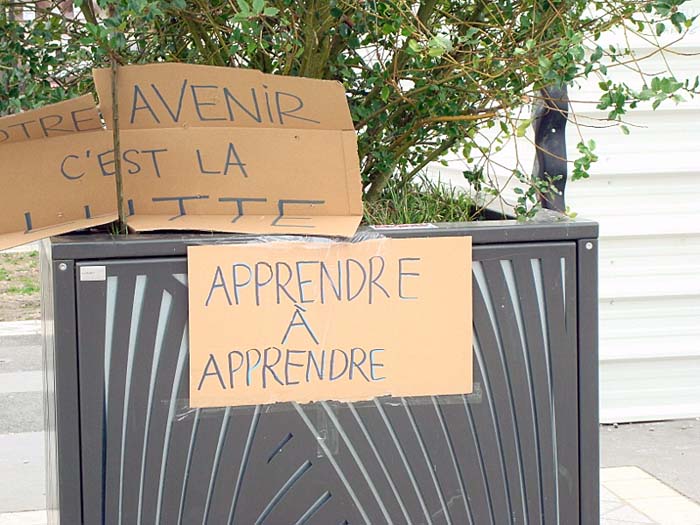 OTRE AVENIR
C'EST LA
LUTTE
APPRENDRE
À
APPRENDRE